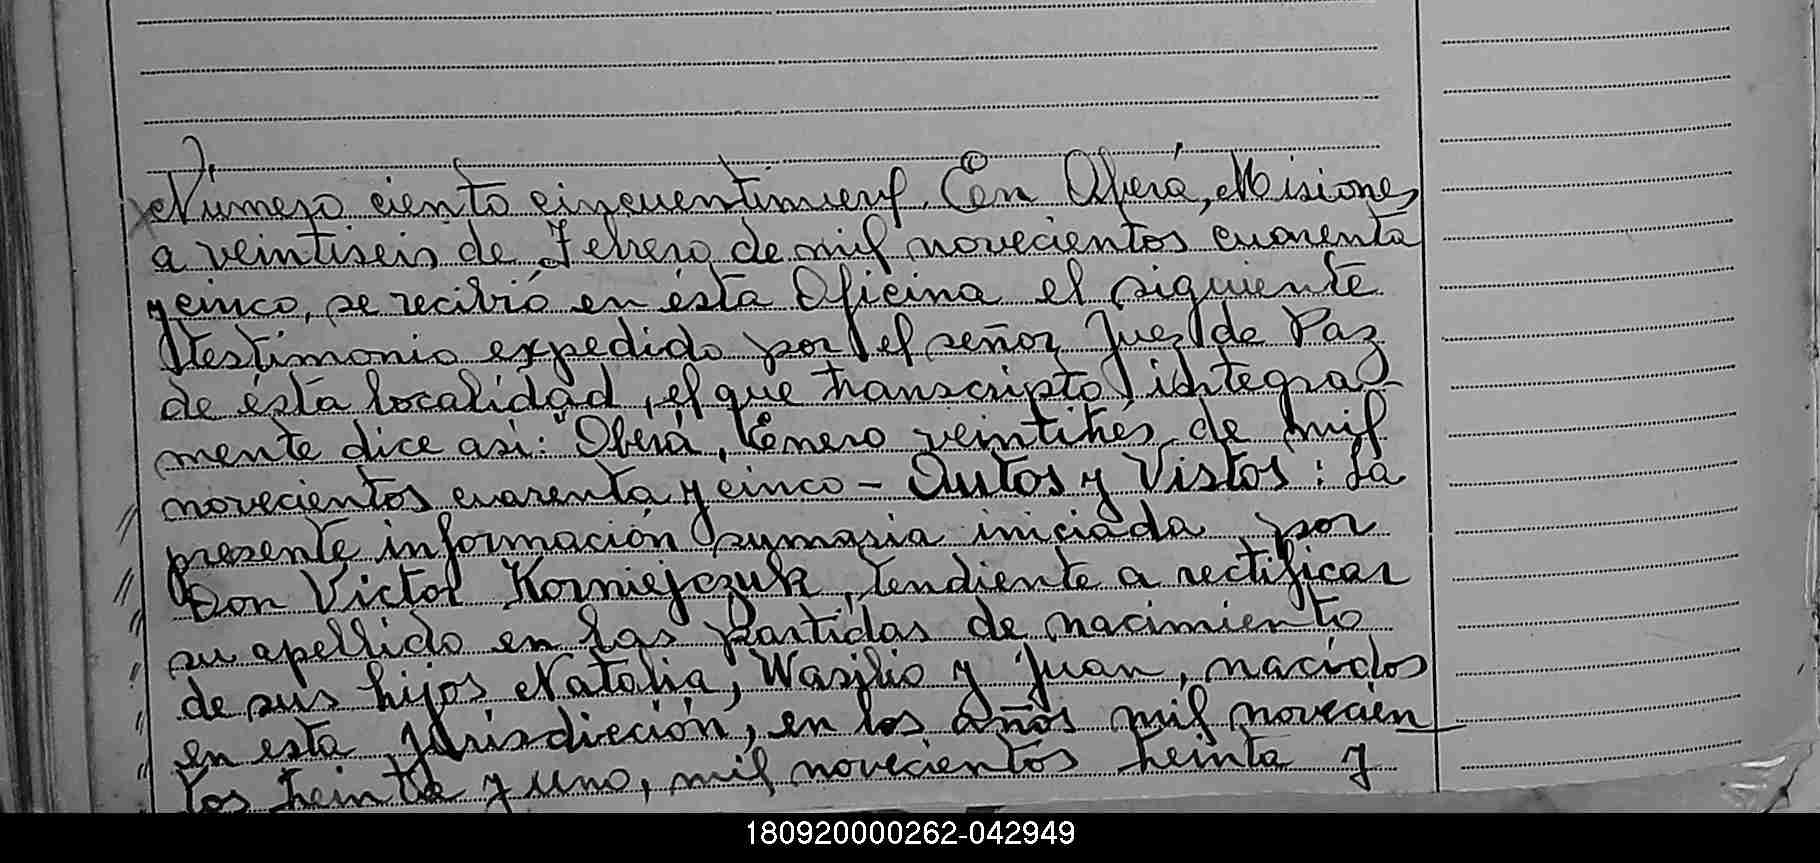 Número ciento cincuentinueve. En Oberá, Misiones
a veintiseis de Febrero de mil novecientos cuarenta
y cinco, se recibió en ésta Oficina el siguiente
testimonio expedido por el señor Juez de Paz
de ésta localidad, el que transcripto integra-
mente dice asi: "Oberá, Enero veintitrés de mil
novecientos cuarenta y cinco - Autos y Vistos: La
presente información sumaria iniciada por
Don Victor Korniejczuk, tendiente a rectificar
su apellido en las partidas de nacimiento
de sus hijos Natalia, Wasilio y Juan, nacidos
en esta jurisdicción, en los años mil novecien
tos treinta y uno, mil novecientos treinta y
180920000262-042949